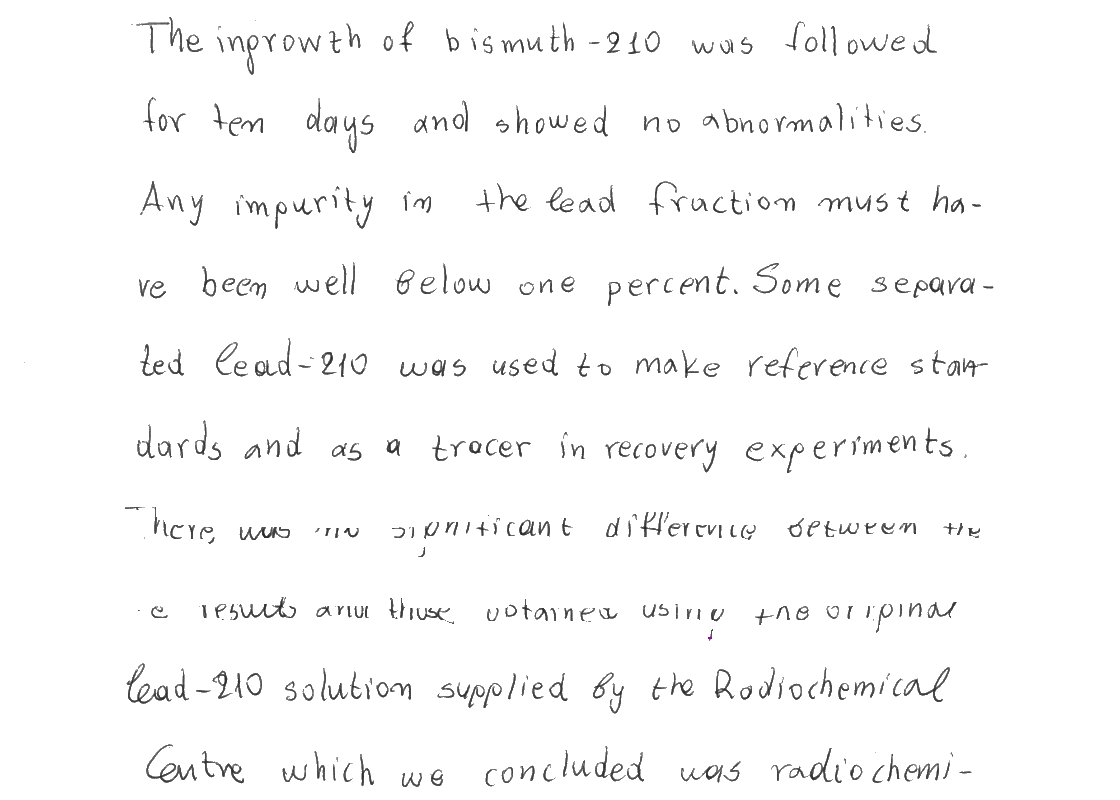 The ingrowth of bismuth-210 was followed
for ten days and showed no abnormalities.
Any impurity in the lead fraction must ha-
ve been well below one percent. Some separa-
ted lead-210 was used to make reference stan-
dards and as a tracer in recovery experiments.
There was no significant difference between the
e results and those obtained using the original
lead-210 solution supplied by the Radiochemical
Centre which we concluded was radiochemi-